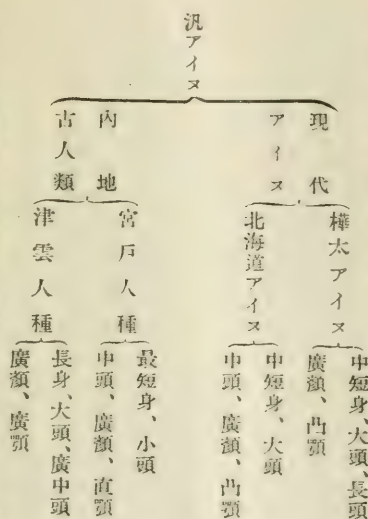 汎アイヌ
現代
アイヌ
樺太アイヌ
中短身、大頭、長頭
廣顔、凸顎
北海道アイヌ
中短身、大頭
中頭、廣顔、凸顎
內地
古人類
宮戸人種
最短身、小頭
中頭、廣顔、直顎
津雲人種
長身、大頭、廣中頭
廣顔、廣顎